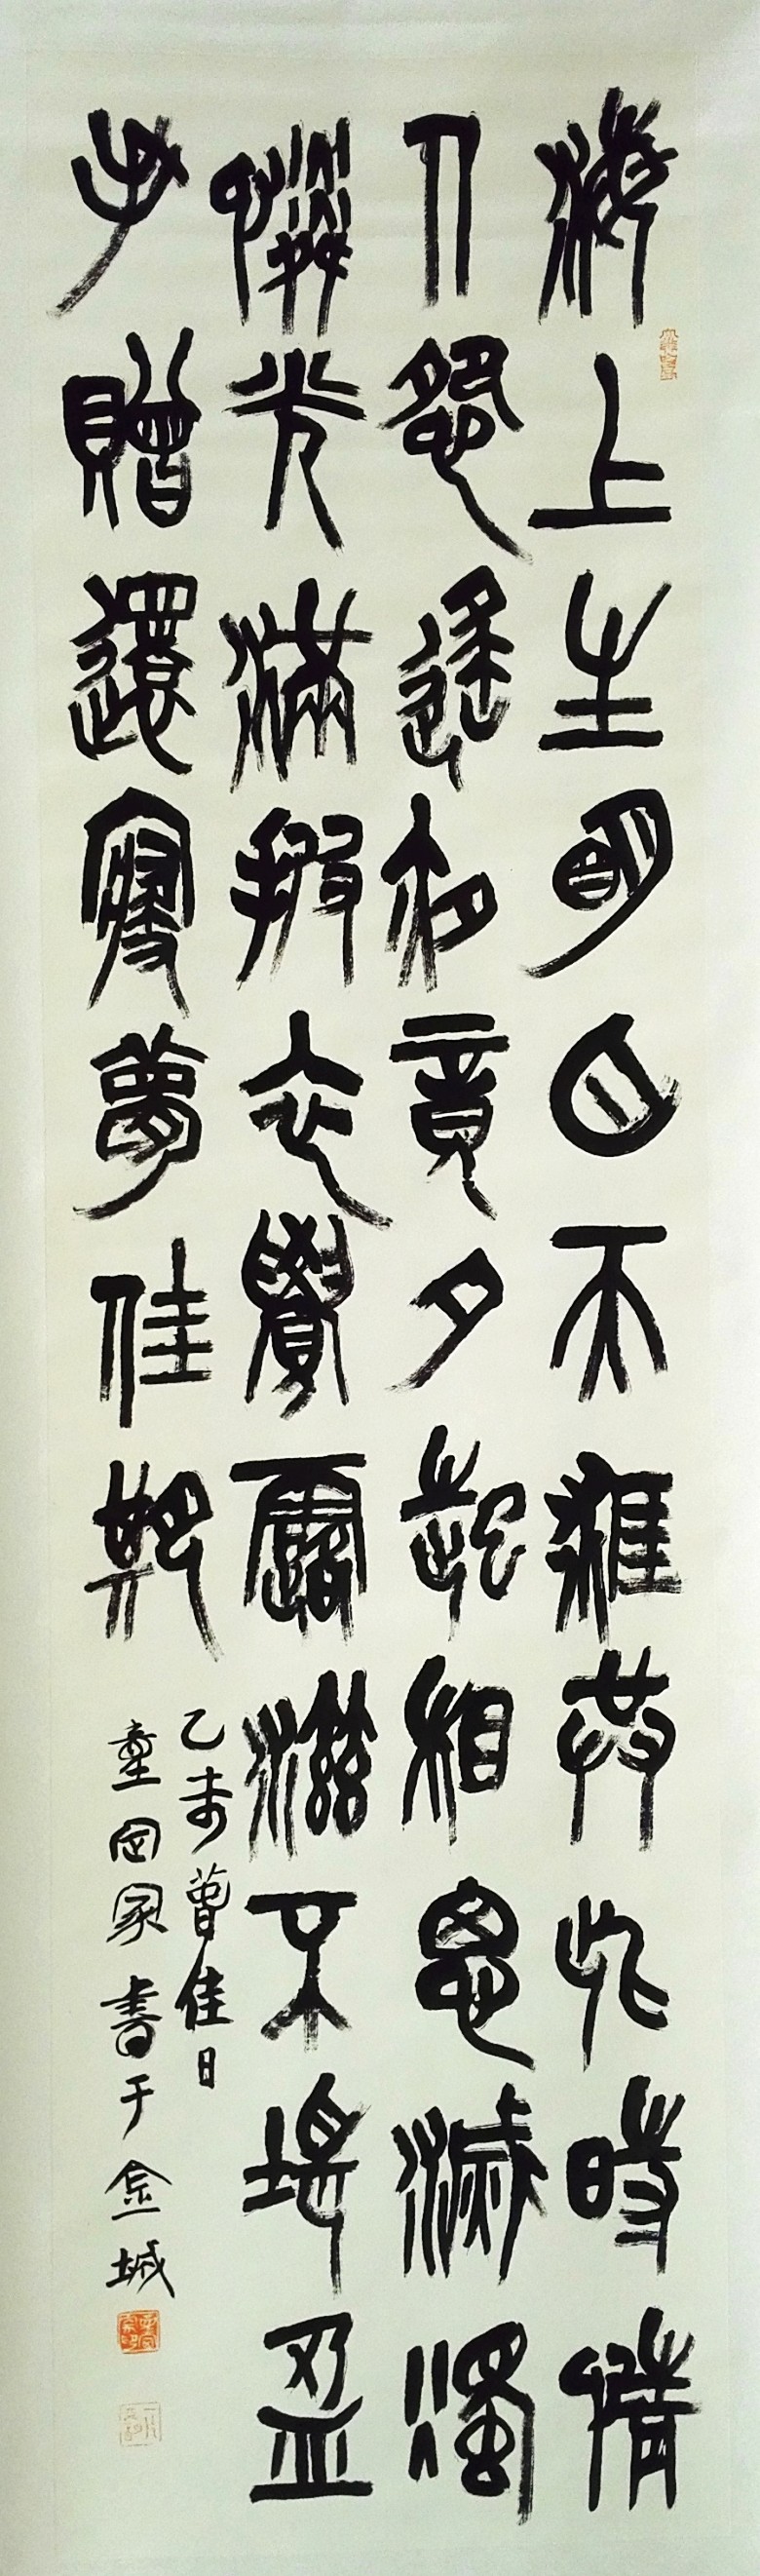 海上生明月天涯共此時情
人怨遙夜竟夕起相思滅燭
憐光滿披衣覺露滋不堪盈
手贈還寢夢佳期
乙未萅佳日
童国家書于金城